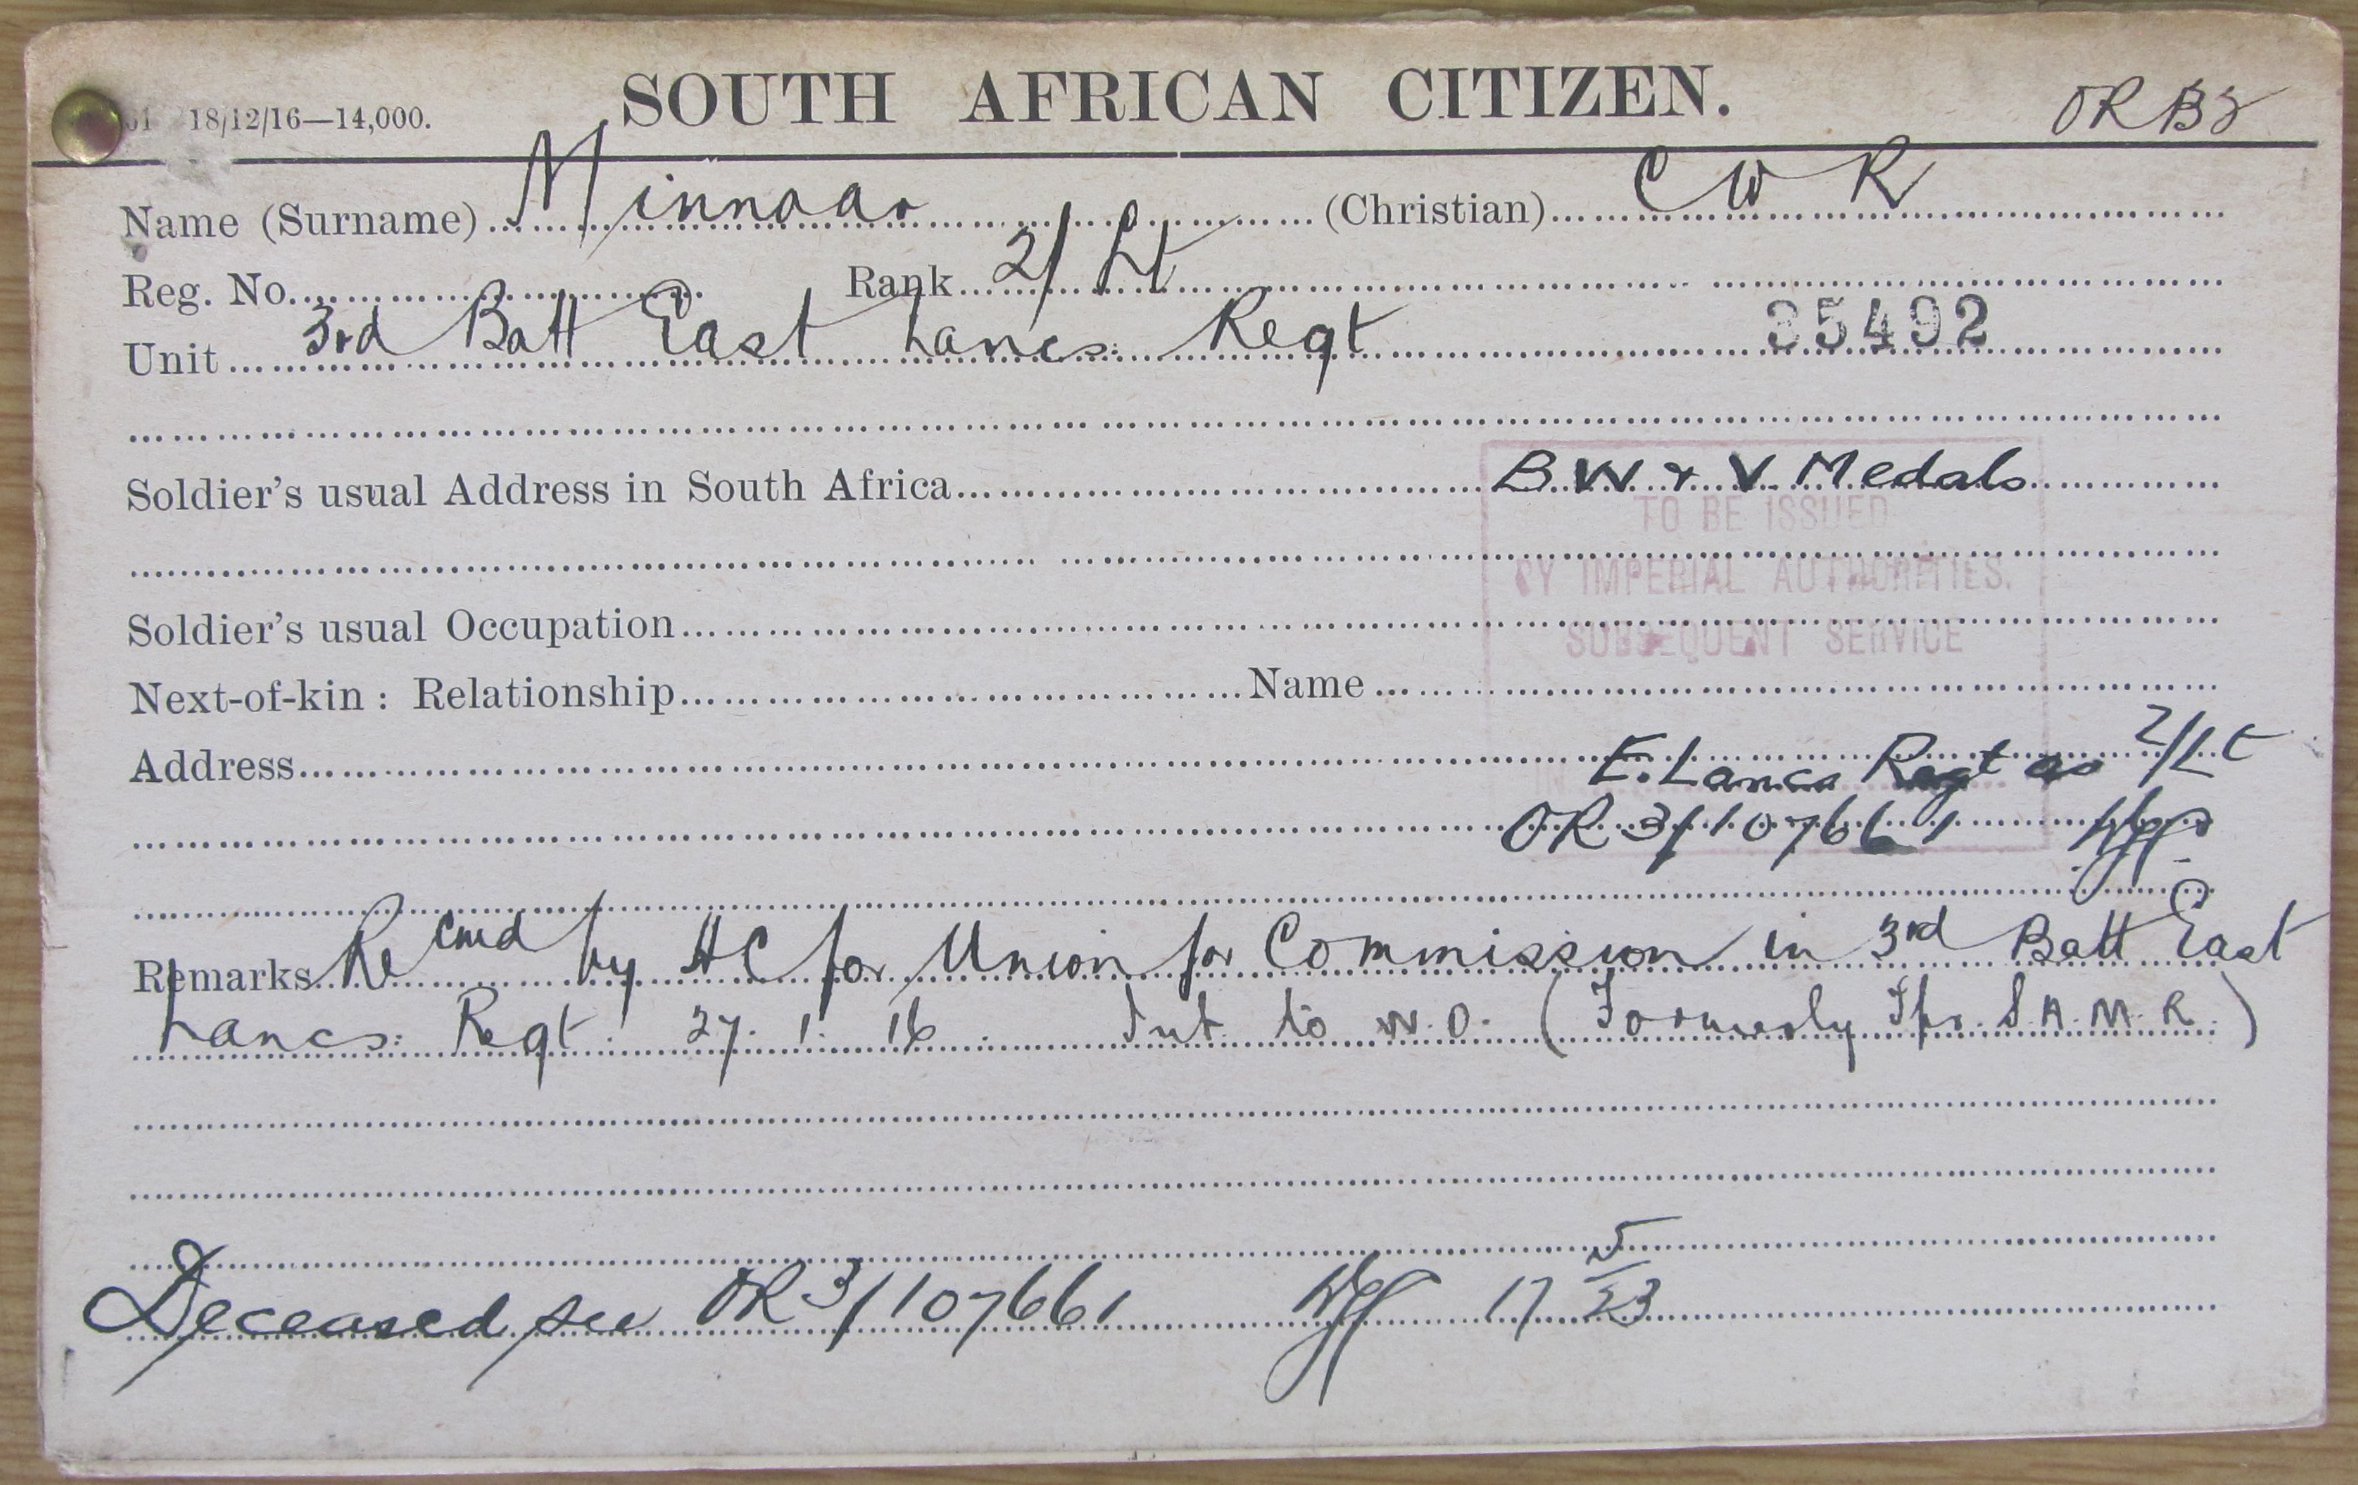 18/12/16—14,000. SOUTH AFRICAN CITIZEN. OR B3
Name (Surname) Minnaar (Christian) C W R
Reg. No. Rank 2/Lt
Unit 3rd Batt East Lancs: Regt 35492
Soldier's usual Address in South Africa B W & V Medals
TO BE ISSUED
BY IMPERIAL AUTHORITIES.
Soldier's usual Occupation
SUBSEQUENT SERVICE
Next-of-kin : Relationship Name
Address E. Lancs Regt as 2/Lt
OR 3/107661
Remarks Recmd by HC for Union for Commission in 3rd Batt East
Lancs: Regt. 27. 1. 16. Int. to W.O. (Formerly Tpr. S.A.M.R.)
Deceased see OR 3/107661 17 5/23